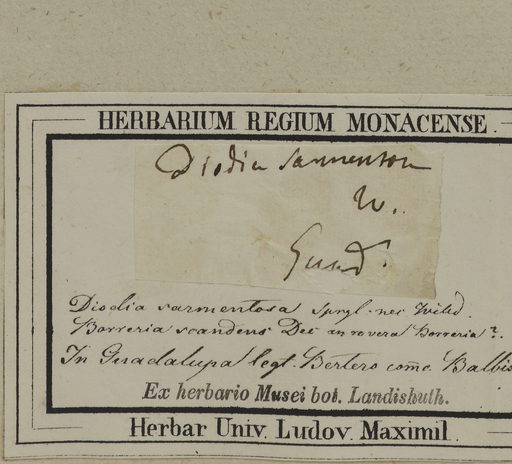 HERBARIUM REGIUM MONACENSE.
Diodia sarmentosa
W.
Guad.
Diodia sarmentosa Sprgl. nec Willd.
Borreria scandens Dec anro vera Borreria?.
In Guadalupa legt. Bertero com̄c. Balbis
Ex herbario Musei bot. Landishuth.
Herbar Univ. Ludov. Maximil.